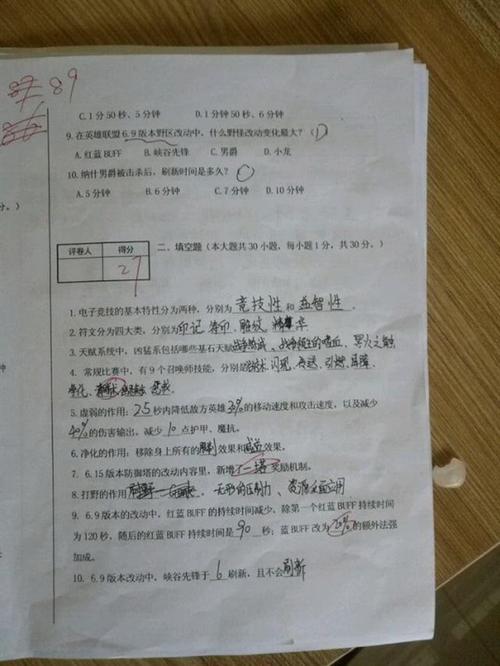 89
C. 1分50秒、5分钟 D. 1分50秒、6分钟
9. 在英雄联盟6.9版本野区改动中，什么野怪改动变化最大？（D）
A. 红蓝BUFF B. 峡谷先锋 C. 男爵 D. 小龙
10. 纳什男爵被击杀后，刷新时间是多久？（C）
A. 5分钟 B. 6分钟 C. 7分钟 D. 10分钟
分。）
评卷人 得分
27
二、填空题（本大题共30小题，每小题1分，共30分。）
1. 电子竞技的基本特性分为两种，分别为竞技性和益智性。
2. 符文分为四大类，分别为印记、符印、雕纹、精华
3. 天赋系统中，凶猛系包括哪些基石天赋战争热诚、战争领主的嗜血、冥火之触
4. 常规比赛中，有9个召唤师技能，分别是治疗术、闪现、传送、引燃、屏障、
净化、
5. 虚弱的作用：2.5秒内降低敌方英雄30%的移动速度和攻击速度，以及减少
40%的伤害输出，减少10点护甲、魔抗。
6. 净化的作用：移除身上所有的限制效果和减益效果。
7. 6.15版本防御塔的改动内容里，新增了一塔奖励机制。
8. 打野的作用 无形的压制力、资源
9. 6.9版本的改动中，红蓝BUFF的持续时间减少，除第一个红蓝BUFF持续时间
为120秒，随后的红蓝BUFF持续时间是90秒；蓝BUFF改为20%的额外法强
加成。
10. 6.9版本改动中，峡谷先锋于6刷新，且不会刷新